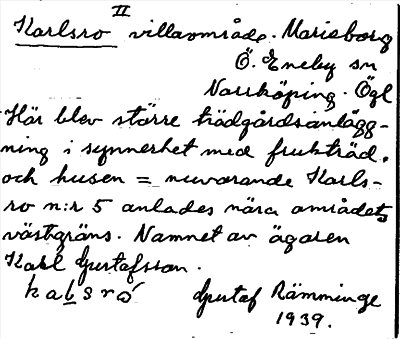 II
Karlsro villaområde. Marieborg
Ö. Eneby sn
Norrköping. Ögl
Här blev större trädgårdsanlägg-
ning i synnerhet med fruktträd.
och husen = nuvarande Karls-
ro n:r 5 anlades nära områdets
västgräns. Namnet av ägaren
Karl Gustafsson.
kabsrǻ
Gustaf Rämminge
1939.